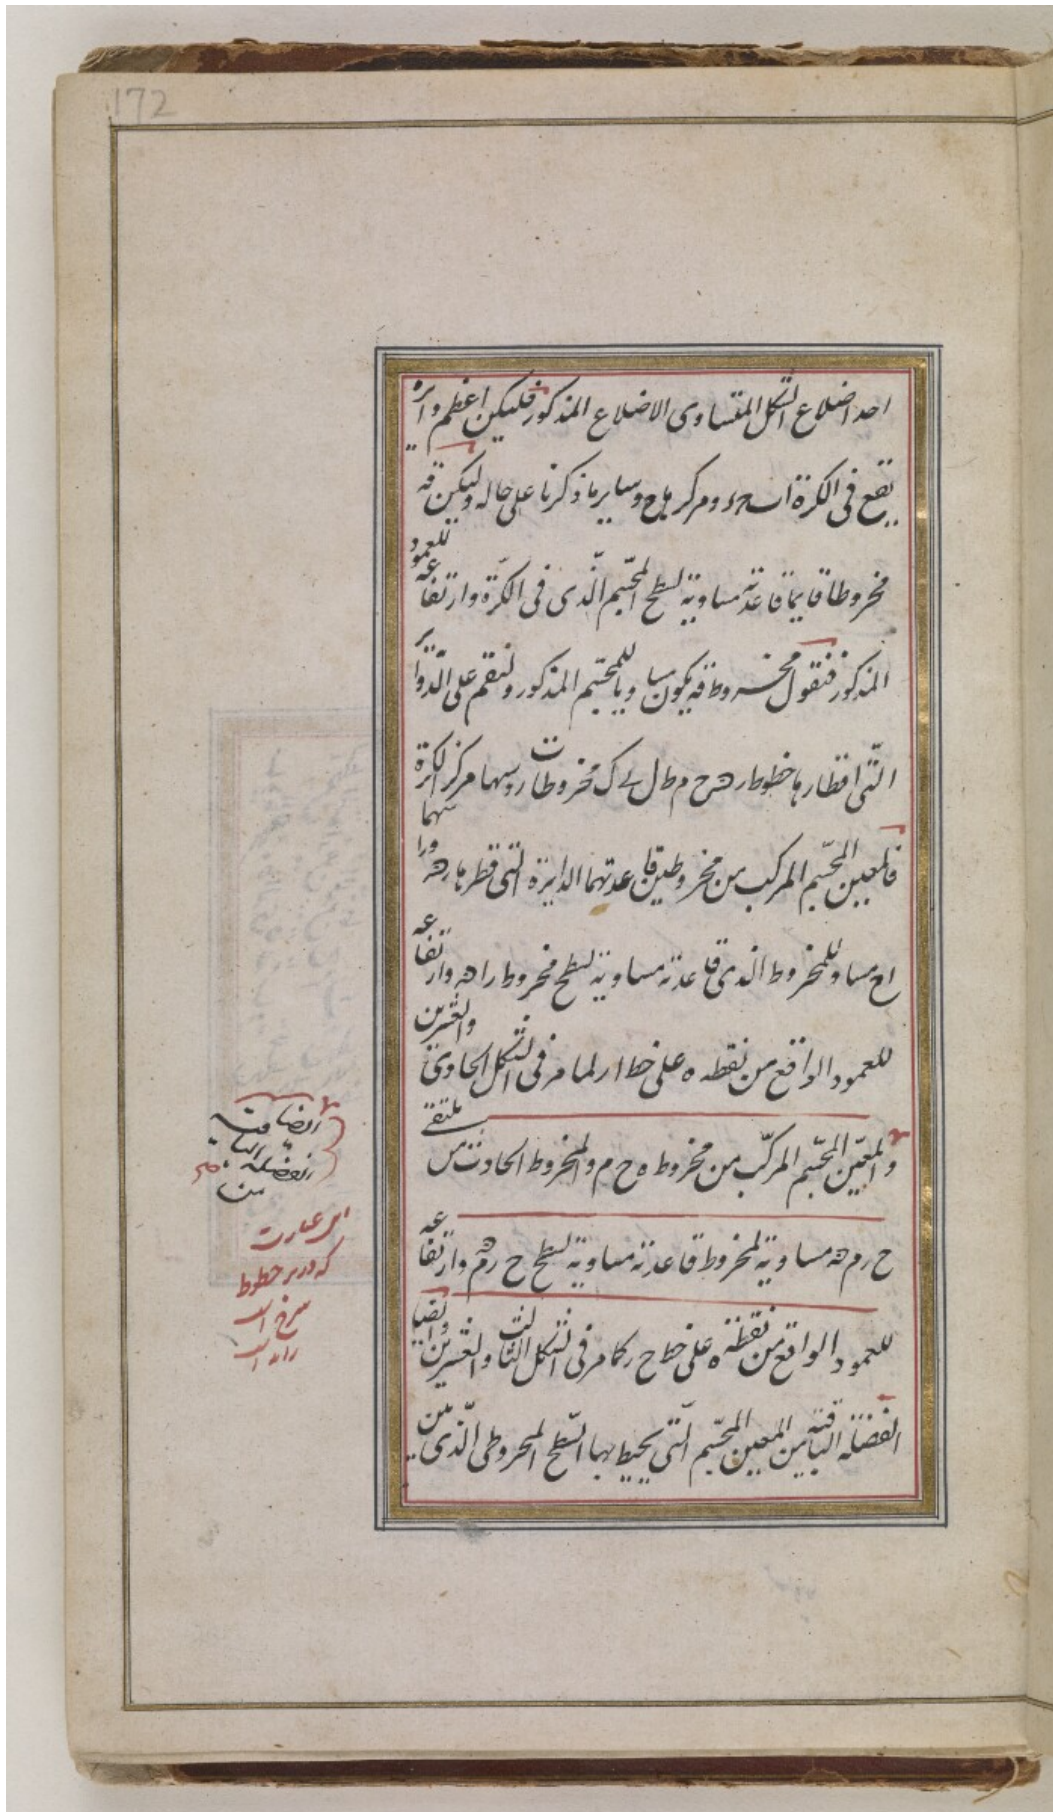 172
احد اضلاع الشكل المتساوى الاضلاع المذكور فليكن اعظم دائرة
تقع فى الكرة ا ب ج د ومركزها ح وساير ما ذكرنا على حاله وليكن قه
مخروطا قايما قاعدته مساوية لسطح المجسّم الّذى فى الكرة وارتفاعه للعمود
المذكور فنقول مخروط قه يكون مساويا للمجسّم المذكور ولنقم على الدّواير
الّتى اقطارها خطوط ره ح م ط ل ى ك مخروطات روسها مركز الكرة
فالمعين المجسّم المركب من مخروطين قاعدتهما الدايرة التى قطرها ره وراسهما
اح مساو للمخروط الذى قاعدته مساوية لسطح مخروط راه وارتفاعه
للعمود الواقع من نقطة ه على خط ار لما مر فى الشكل الحاوى والعشرين
والمعيّن المجسّم المركّب من مخروط ه ح م والمخروط الحادث من ملتقى
ح رم ه مساوية لمخروط قاعدته مساوية لسطح ح رم ه وارتفاعه
للعمود الواقع من نقطة ه على خط ح ر كما مر فى الشكل الثالث والعشرين وايضا
الفضلة الباقية من المعين المجسّم الّتى يحيط بها السّطح المخروطى الّذى بين
ايضا
الفضلة
من
اين عبارت
كه در بر خطوط
سرخ است
زايد است